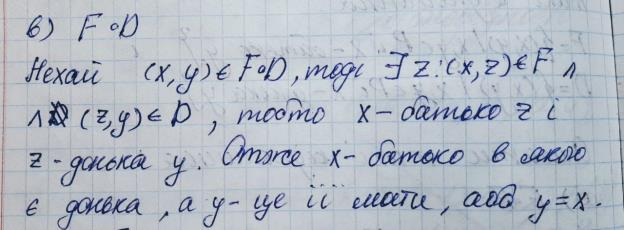 в) F∘D
Нехай (x, y) ∈ F∘D, тоді ∃ z: (x, z) ∈ F ∧
∧ (z, y) ∈ D, тобто x - батько z і
z - донька y. Отже x - батько в якого
є донька, а y - це її мати, або y = x.